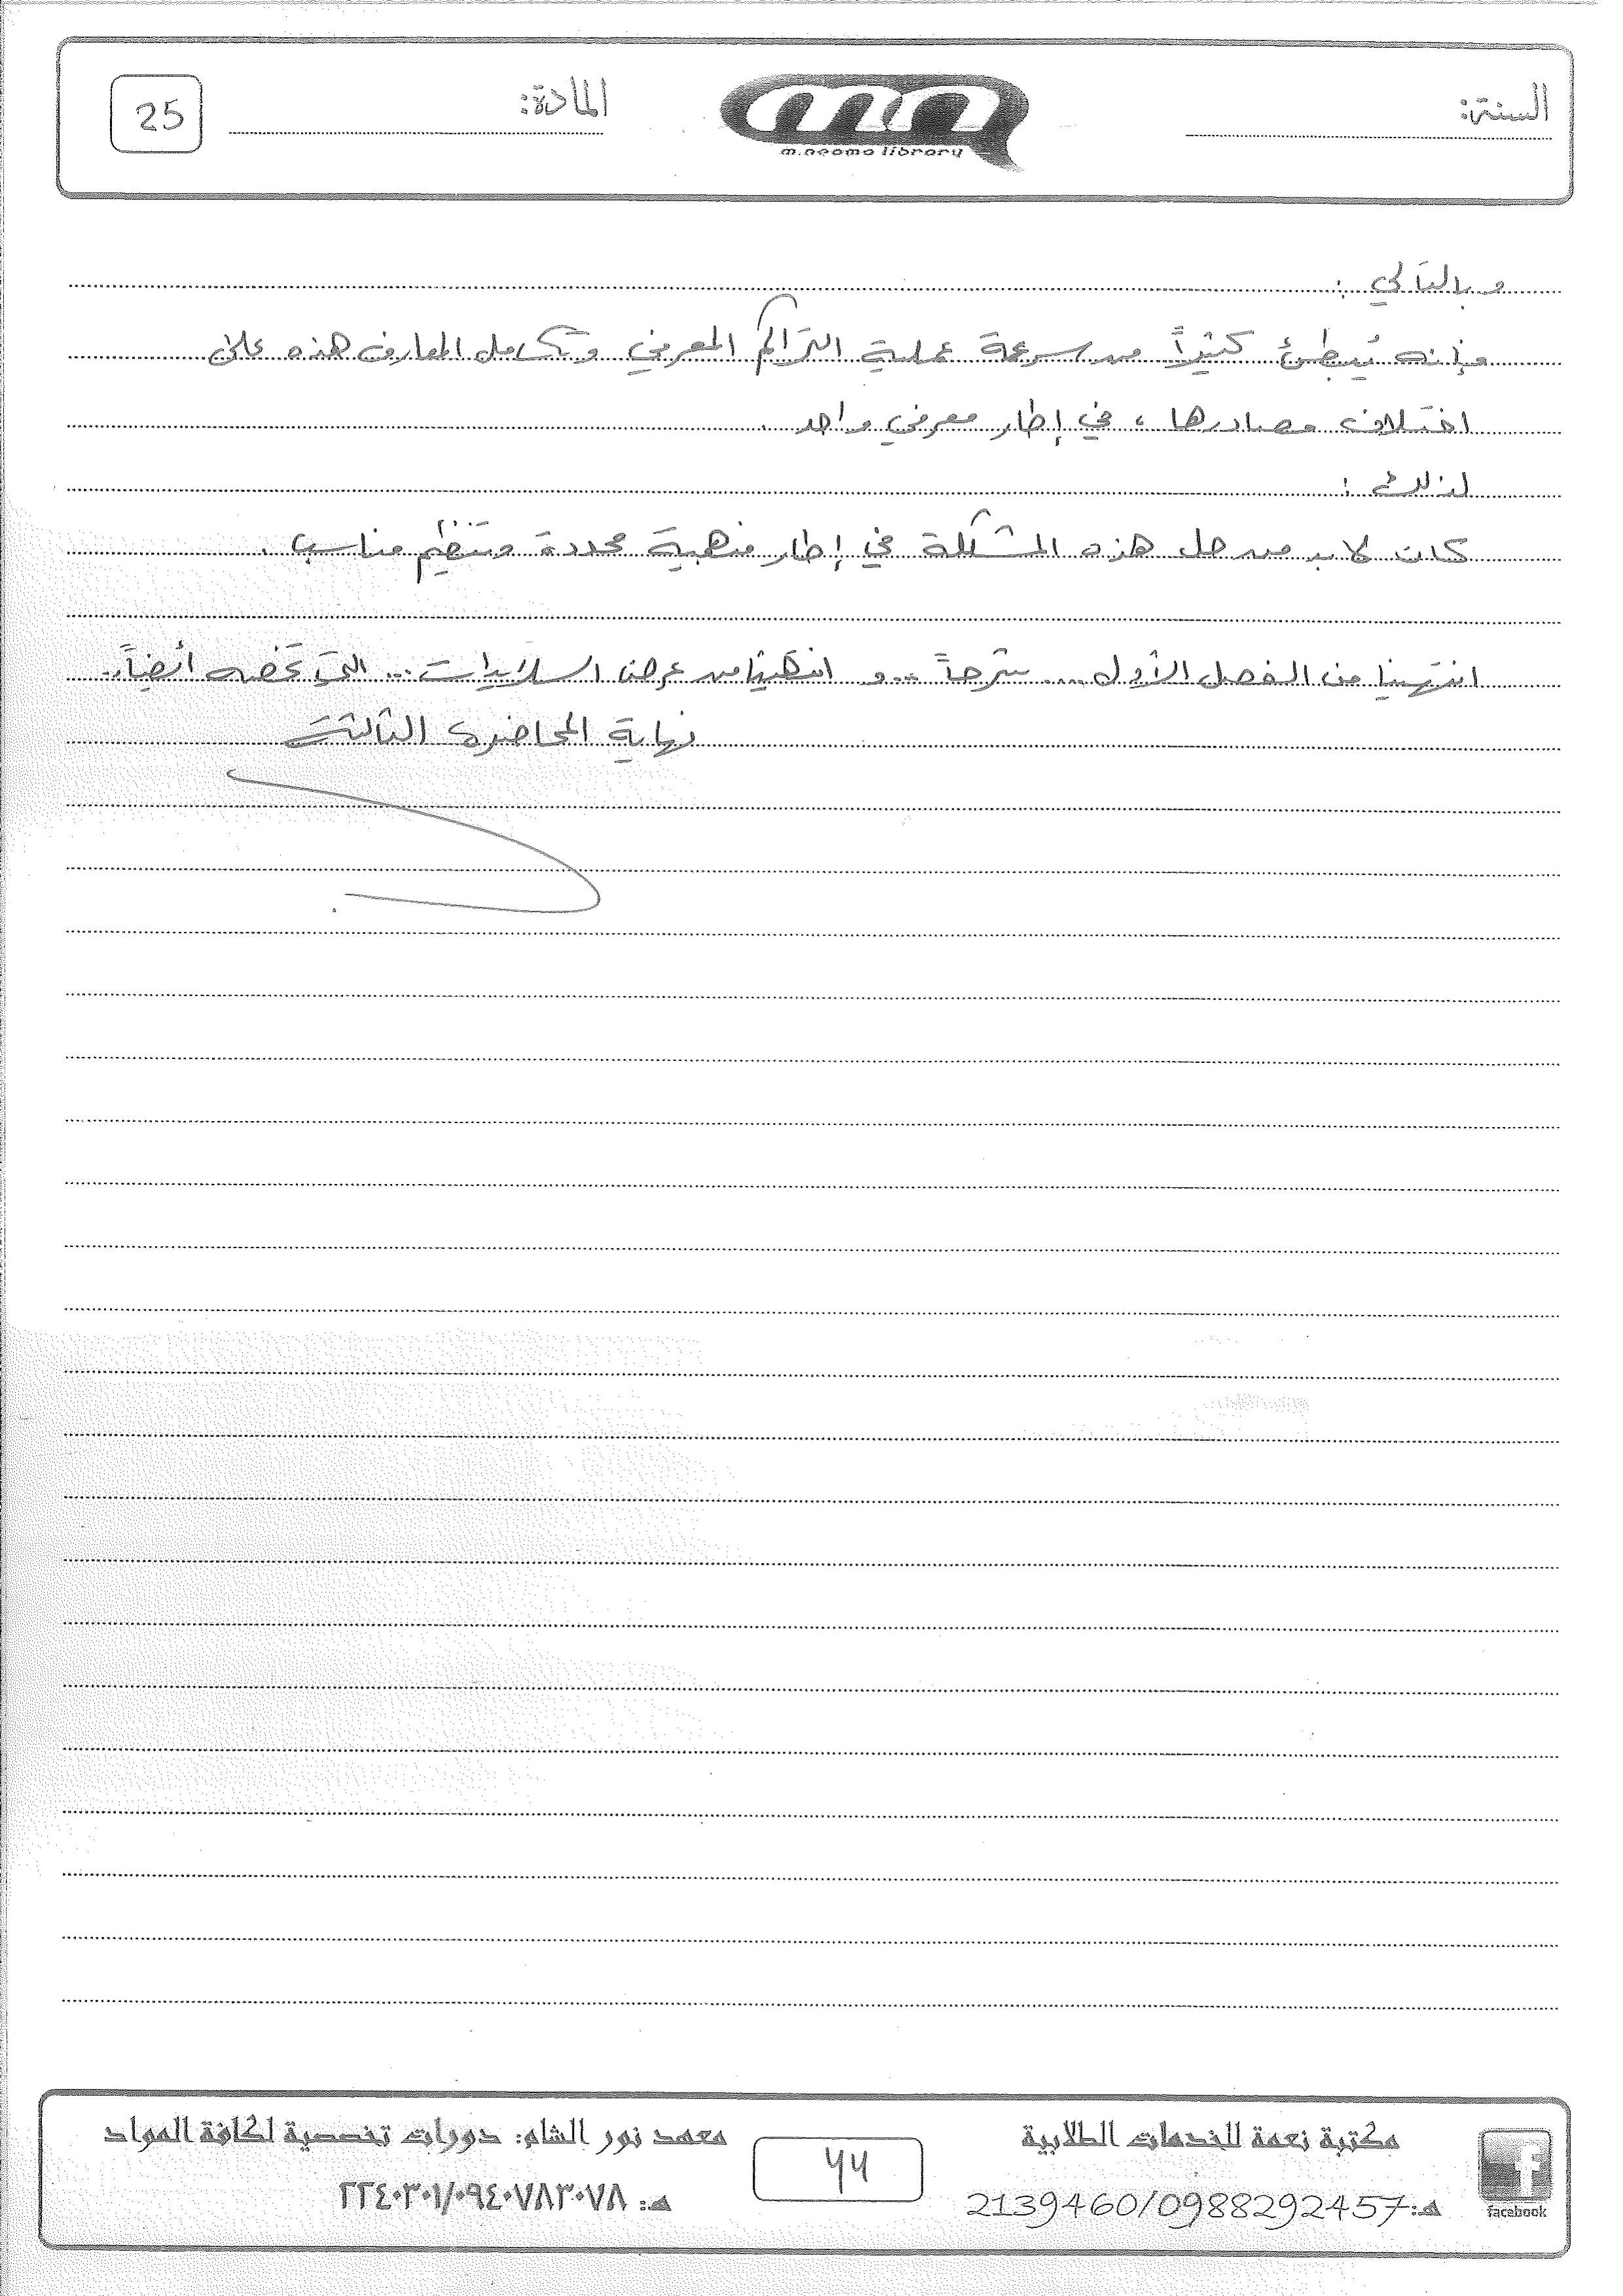 السنة:
m.neama library
المادة:
25
وبالتالي :
فإنه يُبطئ كثيراً من سرعة عملية التراكم المعرفي وتكامل المعارف هذه على
اختلاف مصادرها ، في إطار معرفي واحد .
لذلك :
كان لابد من حل هذه المشكلة في إطار منهجية محددة وتنظيم مناسب .
انتهينا من الفصل الأول ... شرحاً ... و انتهينا من عرض السلايدات ... التي تخصه أيضاً..
نهاية المحاضرة الثالثة
facebook
مكتبة نعمة للخدمات الطلابية
هـ:2139460/0988292457
معهد نور الشام: دورات تخصصية لكافة المواد
هـ: ٢٢٤٠٣٠١/٠٩٤٠٧٨٣٠٧٨